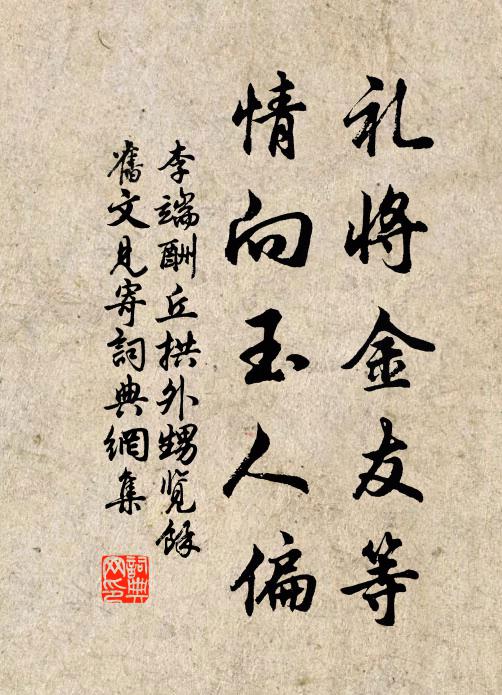 礼将金友等
情向玉人偏
李端酬丘拱外甥览馀
旧文见寄词典網集
詞典网印